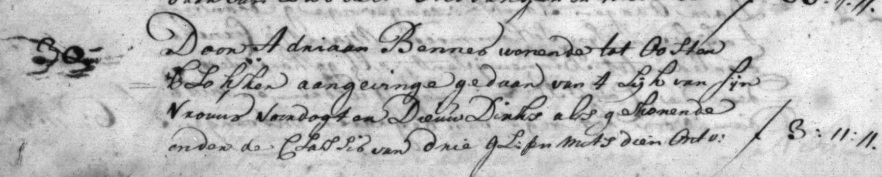 30
Door Adriaan Bennes wonende tot Ooster
Blokker aangevinge gedaan van 't Lijk van sijn
Vrouws Voordogter Dieuw Dirks als gehorende
onder de Classis van drie gl: pn mits dien Ontv: f 3:11:11.